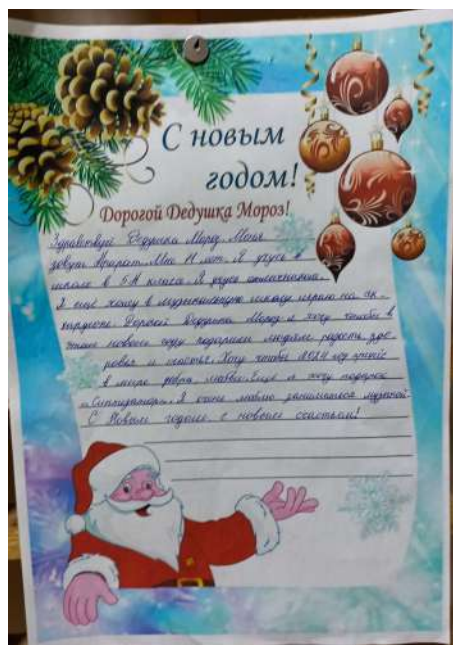 С новым
годом!
Дорогой Дедушка Мороз!
Здравствуй Дедушка Мороз Меня
зовут Арарат. Мне 11 лет. Я учусь в
школе в 5А классе. Я учусь
Я ещё хожу в музыкальную школу играю на ак-
кардионе. Дорогой Дедушка Мороз я хочу чтобы в
этом новом году подарили людям радость здо-
ровья и счастья. Хочу чтобы 2024 год
в мире добра любви. Ещё я хочу подарок
"Синтезатор". Я очень люблю заниматься музыкой.
С Новым годом с новым счастьем!